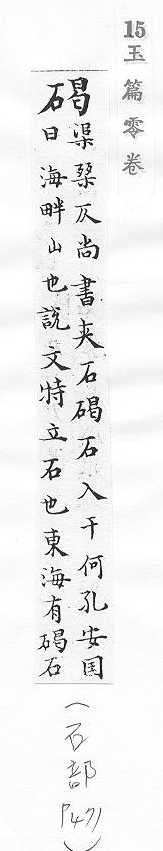 15玉篇零卷
碣渠桀仄尚書夹石碣石入于何孔安国
曰海畔山也說文特立石也東海有碣石
（石部P471）